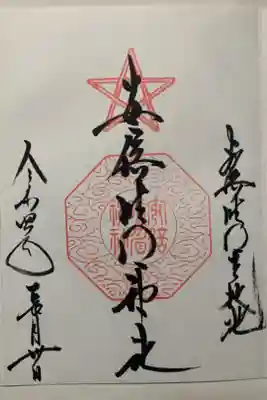 安倍晴明生誕地
安倍晴明神社
令和四年 月廿日